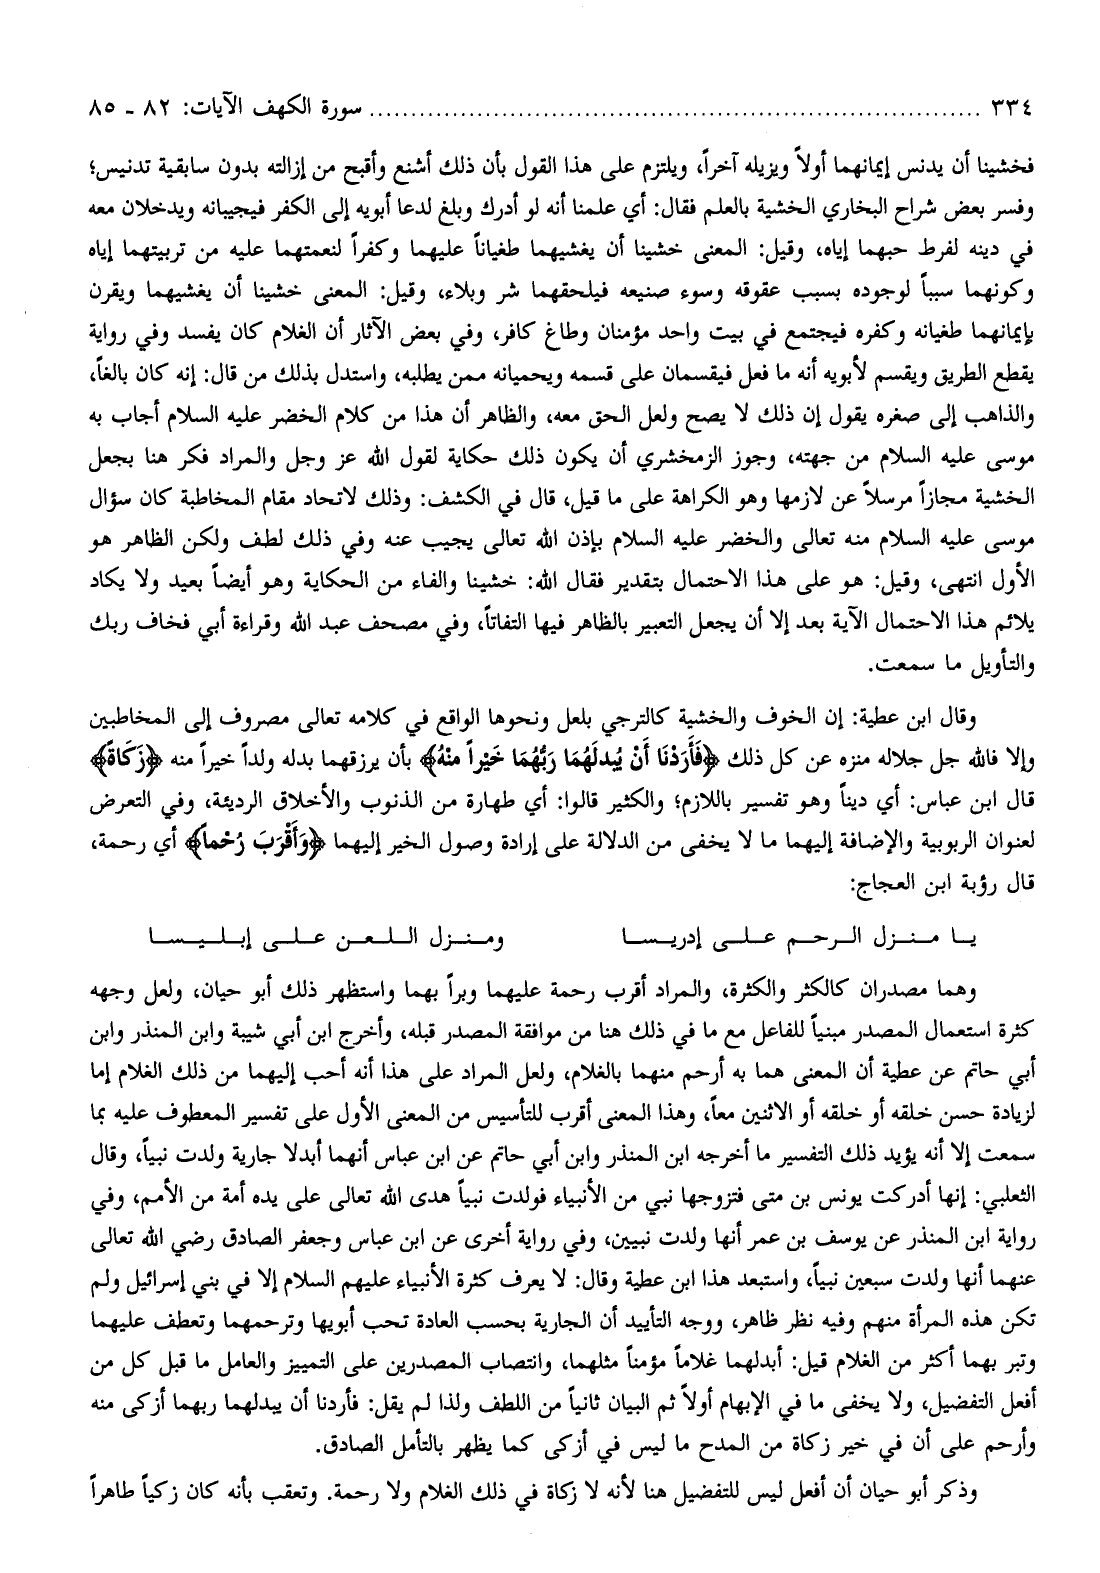 ٣٣٤ ........................................................................ سورة الكهف الآيات: ٨٢ ـ ٨٥
فخشينا أن يدنس إيمانهما أولاً ويزيله آخراً، ويلتزم على هذا القول بأن ذلك أشنع وأقبح من إزالته بدون سابقية تدنيس؛
وفسر بعض شراح البخاري الخشية بالعلم فقال: أي علمنا أنه لو أدرك وبلغ لدعا أبويه إلى الكفر فيجيبانه ويدخلان معه
في دينه لفرط حبهما إياه، وقيل: المعنى خشينا أن يغشيهما طغياناً عليهما وكفراً لنعمتهما عليه من تربيتهما إياه
وكونهما سبباً لوجوده بسبب عقوقه وسوء صنيعه فيلحقهما شر وبلاء، وقيل: المعنى خشينا أن يغشيهما ويقرن
بإيمانهما طغيانه وكفره فيجتمع في بيت واحد مؤمنان وطاغ كافر، وفي بعض الآثار أن الغلام كان يفسد وفي رواية
يقطع الطريق ويقسم لأبويه أنه ما فعل فيقسمان على قسمه ويحميانه ممن يطلبه، واستدل بذلك من قال: إنه كان بالغاً،
والذاهب إلى صغره يقول إن ذلك لا يصح ولعل الحق معه، والظاهر أن هذا من كلام الخضر عليه السلام أجاب به
موسى عليه السلام من جهته، وجوز الزمخشري أن يكون ذلك حكاية لقول الله عز وجل والمراد فكر هنا بجعل
الخشية مجازاً مرسلاً عن لازمها وهو الكراهة على ما قيل، قال في الكشف: وذلك لاتحاد مقام المخاطبة كان سؤال
موسى عليه السلام منه تعالى والخضر عليه السلام بإذن الله تعالى يجيب عنه وفي ذلك لطف ولكن الظاهر هو
الأول انتهى، وقيل: هو على هذا الاحتمال بتقدير فقال الله: خشينا والفاء من الحكاية وهو أيضاً بعيد ولا يكاد
يلائم هذا الاحتمال الآية بعد إلا أن يجعل التعبير بالظاهر فيها التفاتاً، وفي مصحف عبد الله وقراءة أبي فخاف ربك
والتأويل ما سمعت.
وقال ابن عطية: إن الخوف والخشية كالترجي بلعل ونحوها الواقع في كلامه تعالى مصروف إلى المخاطبين
وإلا فالله جل جلاله منزه عن كل ذلك ﴿فَأَرَدْنَا أَنْ يُبدلَهُمَا رَبُّهُمَا خَيْراً منْهُ﴾ بأن يرزقهما بدله ولداً خيراً منه ﴿زَكَاةً﴾
قال ابن عباس: أي ديناً وهو تفسير باللازم؛ والكثير قالوا: أي طهارة من الذنوب والأخلاق الرديئة، وفي التعرض
لعنوان الربوبية والإضافة إليهما ما لا يخفى من الدلالة على إرادة وصول الخير إليهما ﴿وَأَقْرَبَ رُحْماً﴾ أي رحمة،
قال رؤبة ابن العجاج:
يا منزل الرحم على إدريسا ومنزل اللعن على إبليسا
وهما مصدران كالكثر والكثرة، والمراد أقرب رحمة عليهما وبراً بهما واستظهر ذلك أبو حيان، ولعل وجهه
كثرة استعمال المصدر مبنياً للفاعل مع ما في ذلك هنا من موافقة المصدر قبله، وأخرج ابن أبي شيبة وابن المنذر وابن
أبي حاتم عن عطية أن المعنى هما به أرحم منهما بالغلام، ولعل المراد على هذا أنه أحب إليهما من ذلك الغلام إما
لزيادة حسن خلقه أو خلقه أو الاثنين معاً، وهذا المعنى أقرب للتأسيس من المعنى الأول على تفسير المعطوف عليه بما
سمعت إلا أنه يؤيد ذلك التفسير ما أخرجه ابن المنذر وابن أبي حاتم عن ابن عباس أنهما أبدلا جارية ولدت نبياً، وقال
الثعلبي: إنها أدركت يونس بن متى فتزوجها نبي من الأنبياء فولدت نبياً هدى الله تعالى على يده أمة من الأمم، وفي
رواية ابن المنذر عن يوسف بن عمر أنها ولدت نبيين، وفي رواية أخرى عن ابن عباس وجعفر الصادق رضي الله تعالى
عنهما أنها ولدت سبعين نبياً، واستبعد هذا ابن عطية وقال: لا يعرف كثرة الأنبياء عليهم السلام إلا في بني إسرائيل ولم
تكن هذه المرأة منهم وفيه نظر ظاهر، ووجه التأييد أن الجارية بحسب العادة تحب أبويها وترحمهما وتعطف عليهما
وتبر بهما أكثر من الغلام قيل: أبدلهما غلاماً مؤمناً مثلهما، وانتصاب المصدرين على التمييز والعامل ما قبل كل من
أفعل التفضيل، ولا يخفى ما في الإبهام أولاً ثم البيان ثانياً من اللطف ولذا لم يقل: فأردنا أن يبدلهما ربهما أزكى منه
وأرحم على أن في خير زكاة من المدح ما ليس في أزكى كما يظهر بالتأمل الصادق.
وذكر أبو حيان أن أفعل ليس للتفضيل هنا لأنه لا زكاة في ذلك الغلام ولا رحمة. وتعقب بأنه كان زكياً طاهراً